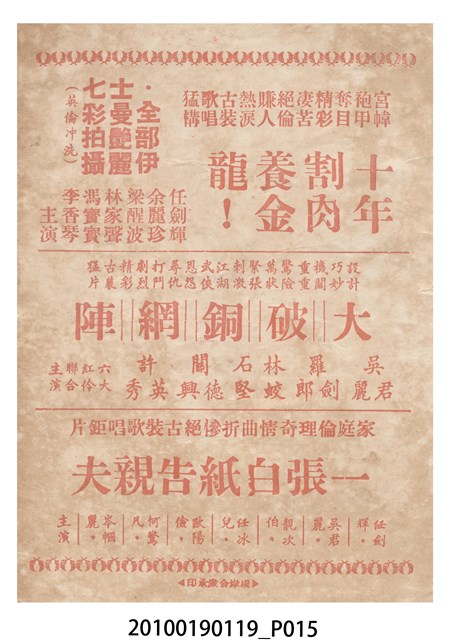 宮幃袍甲奪目精彩凄苦絕倫賺人熱淚古裝歌唱猛構
十年割肉養金龍！
·全部伊士曼艷麗七彩拍攝
(英倫冲洗)
任劍輝
余麗珍
梁醒波
林家聲
馮寶寶
李香琴
主演
設計巧妙機關重重驚險萬狀緊張刺激江湖武俠恩怨尋仇打鬥劇烈精彩古裝猛片
大破銅網陣
吳君麗
羅劍郎
林蛟
石堅
關德興
許英秀
六大紅伶聯合主演
家庭倫理奇情曲折慘絕古裝歌唱鉅片
一張白紙告親夫
任·劍輝
吳君·麗
靚次·伯
任冰·兒
歐陽·儉
何驚·凡
岑幗·麗
主演
承印
20100190119_P015